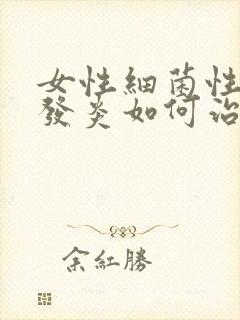 女性細菌性
發炎如何治
余紅勝